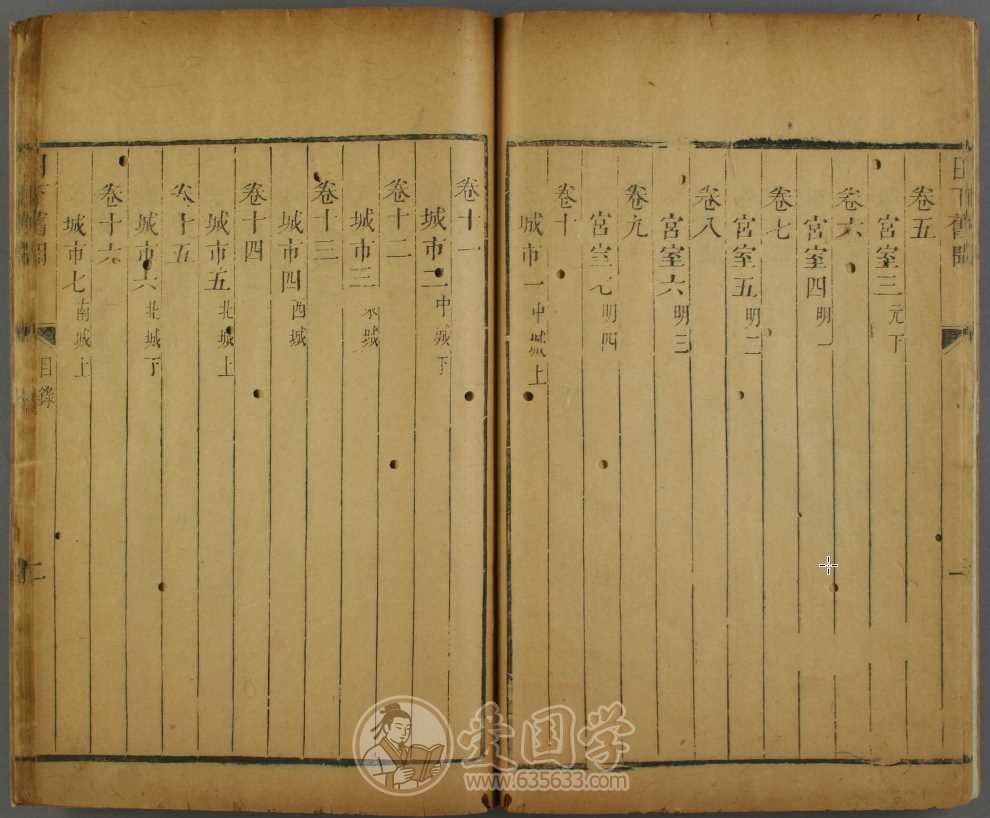 日下舊聞
一
卷五
宮室三 元下
卷六
宮室四 明一
卷七
宮室五 明二
卷八
宮室六 明三
卷九
宮室七 明四
卷十
城市一 中城上
卷十一
城市二 中城下
卷十二
城市三 東城
卷十三
城市四 西城
卷十四
城市五 北城上
卷十五
城市六 北城下
卷十六
城市七 南城上
日下舊聞
目錄
二
爱国学
www.635633.com